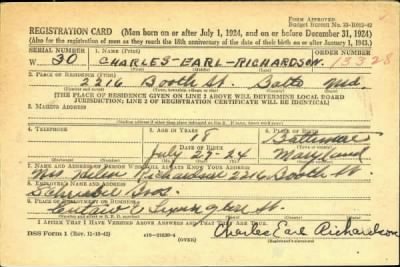 FORM APPROVED
Budget Bureau No. 33-R012-42
REGISTRATION CARD—(Men born on or after July 1, 1924, and on or before December 31, 1924)
(Also for the registration of men as they reach the 18th anniversary of the date of their birth on or after January 1, 1943.)
SERIAL NUMBER 1. NAME (Print) ORDER NUMBER
W 30 CHARLES-EARL-RICHARDSON 13328
(First) (Middle) (Last)
2. PLACE OF RESIDENCE (Print)
2216 Booth St. Balto Md.
(Number and street) (Town, township, village, or city) (County) (State)
[THE PLACE OF RESIDENCE GIVEN ON LINE 2 ABOVE WILL DETERMINE LOCAL BOARD
JURISDICTION; LINE 2 OF REGISTRATION CERTIFICATE WILL BE IDENTICAL]
3. MAILING ADDRESS
4. TELEPHONE 5. AGE IN YEARS 6. PLACE OF BIRTH
18 Baltimore
DATE OF BIRTH
July 29-24 Maryland
7. NAME AND ADDRESS OF PERSON WHO WILL ALWAYS KNOW YOUR ADDRESS
Mrs Helen Richardson 2216 Booth St.
8. EMPLOYER'S NAME AND ADDRESS
Bros.
9. PLACE OF EMPLOYMENT OR BUSINESS
Eutaw & St.
I AFFIRM THAT I HAVE VERIFIED ABOVE ANSWERS AND THAT THEY ARE TRUE.
DSS Form 1 (Rev. 11-16-42) (OVER) Charles Earl Richardson
(Registrant's signature)